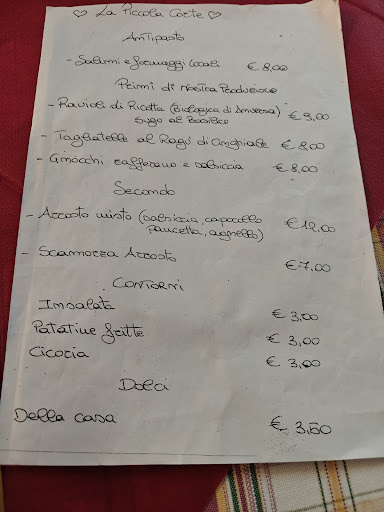 ♡ La Piccola Corte ♡
Antipasto
- Salumi e formaggi locali € 8,00
Primi di Nostra Produzione
- Ravioli di Ricotta (Biologica di Amorosa) € 9,00
Sugo al Basilico
- Tagliatelle al Ragù di Cinghiale € 8,00
- Gnocchi zafferano e salsiccia € 8,00
Secondo
- Arrosto misto (salsiccia, capocollo € 12,00
pancetta, agnello)
- Scamorza Arrosto € 7,00
Contorni
Insalata € 3,00
Patatine fritte € 3,00
Cicoria € 3,00
Dolci
Della casa € 3,50